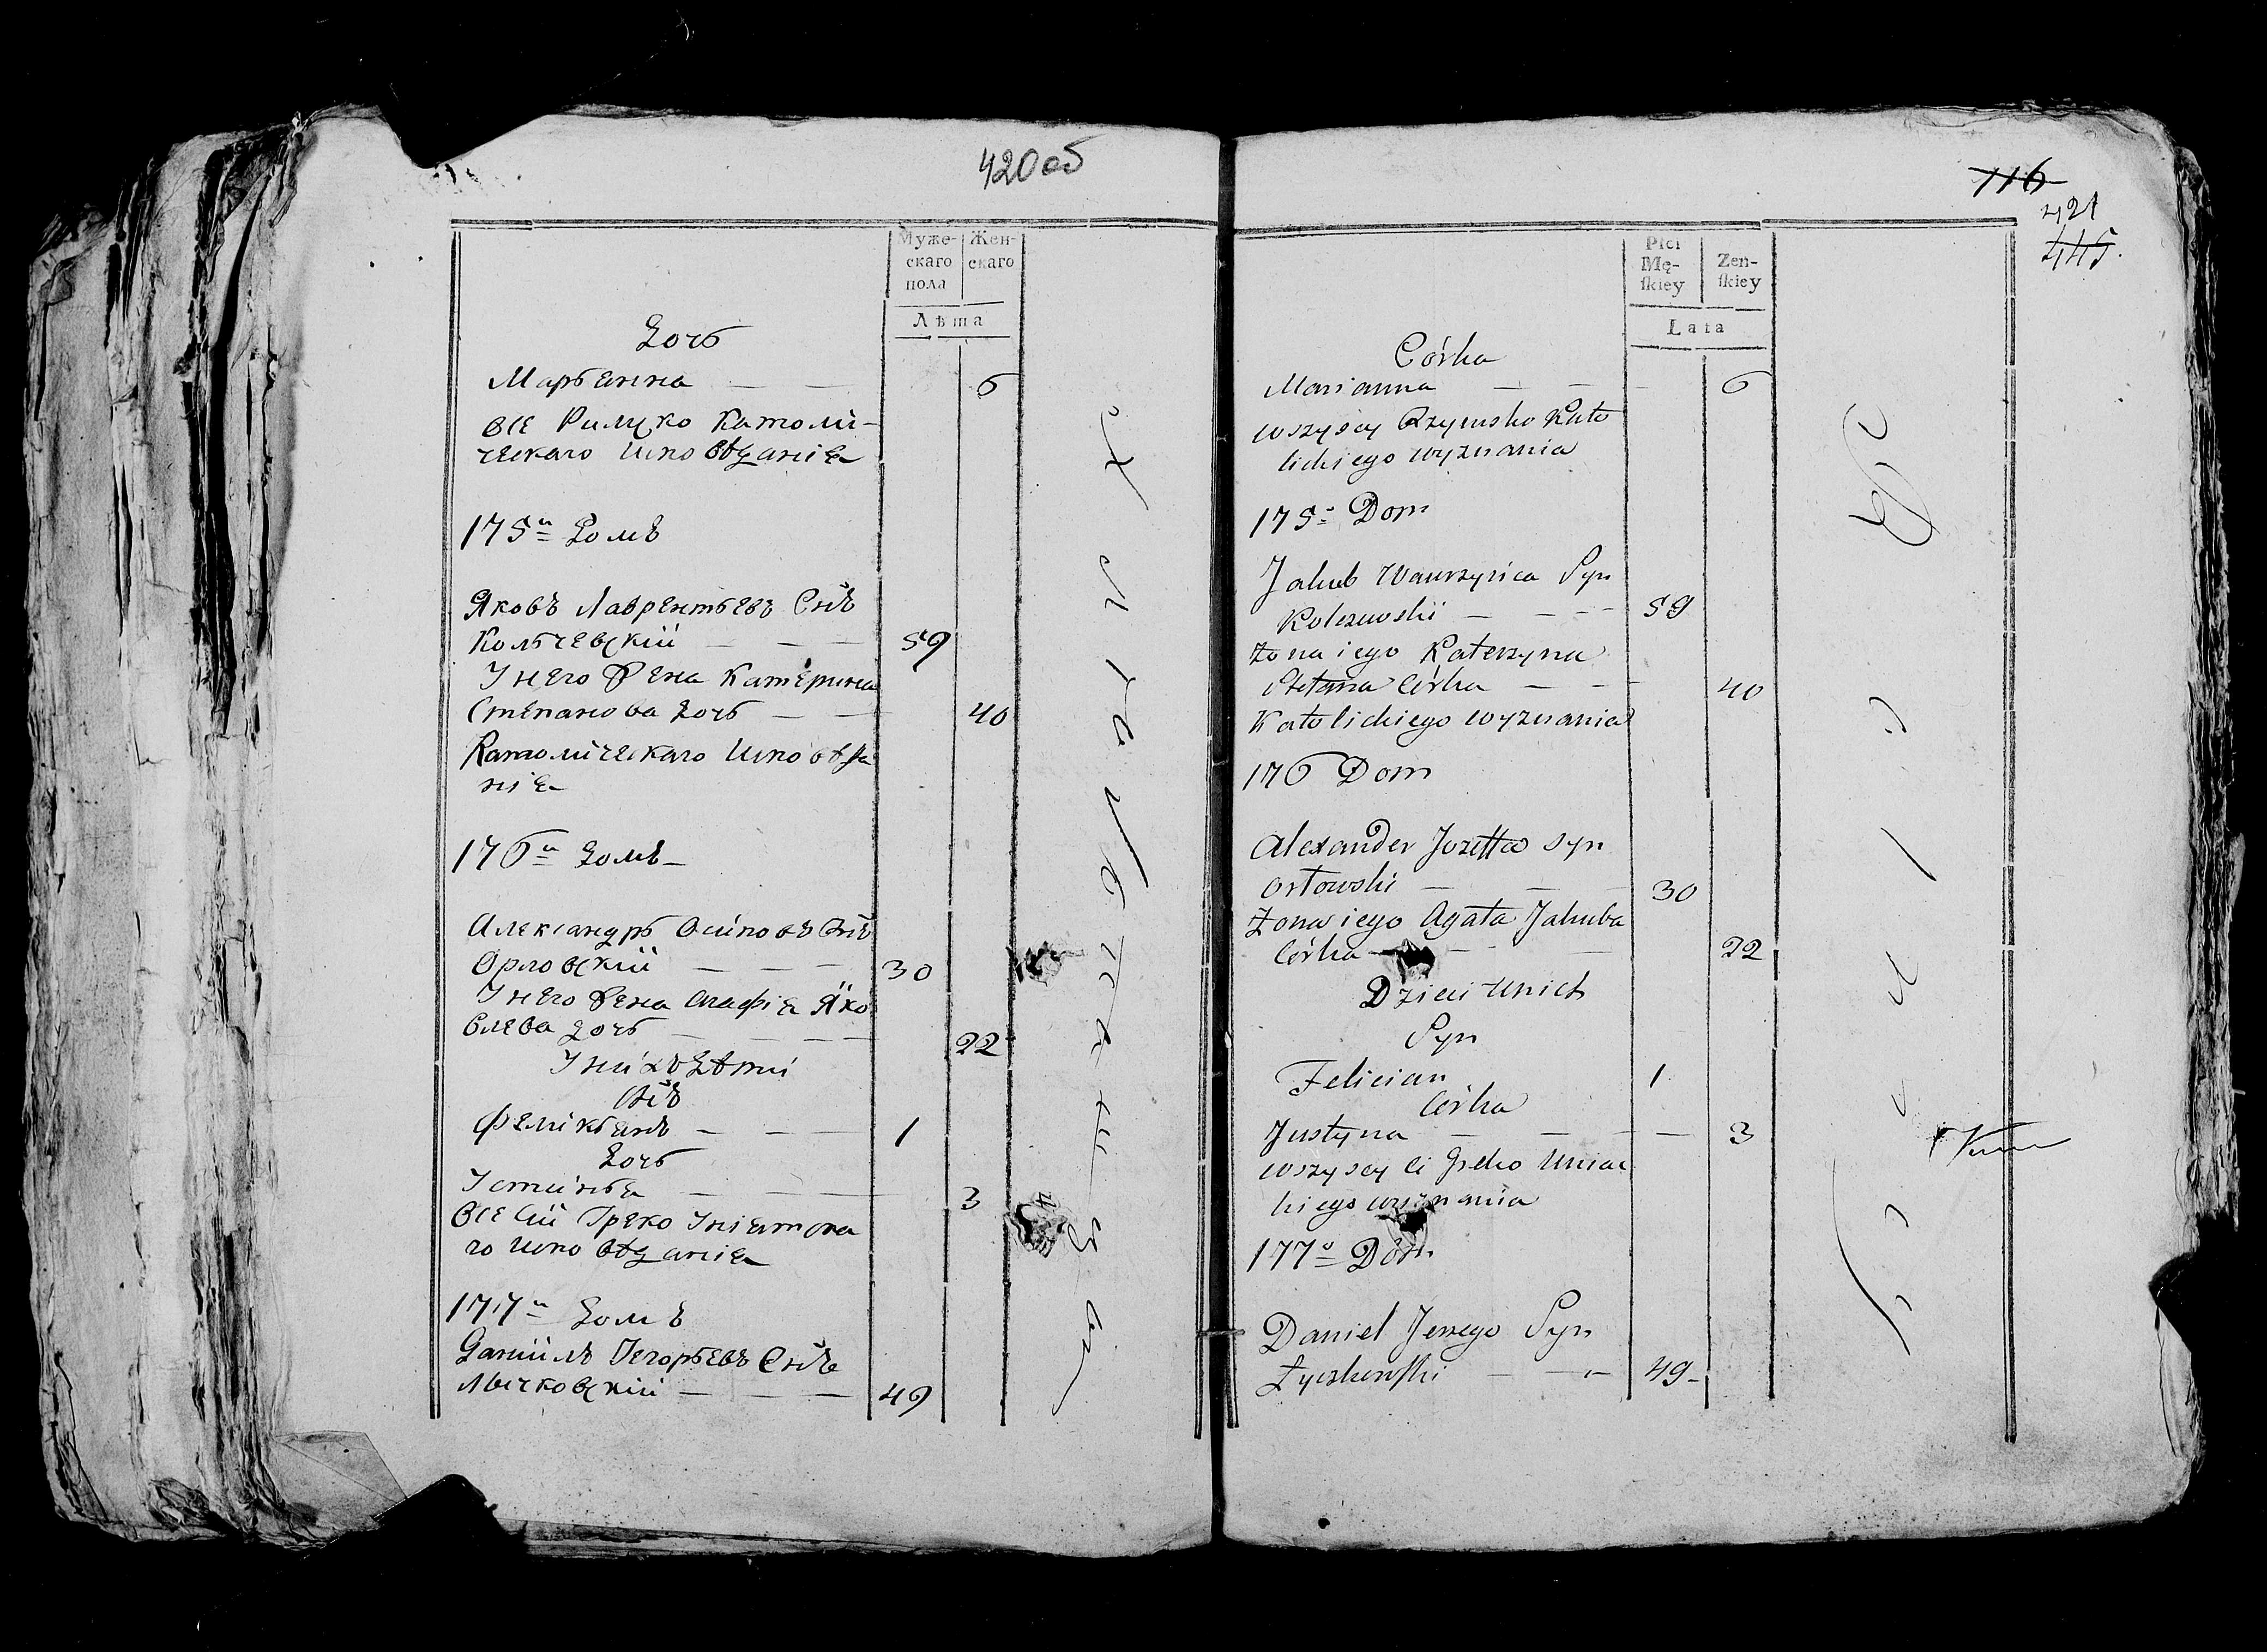 420 об
Муже-
скаго
пола
Жен-
скаго
Лѣта
Дочь
Марьянна — — 6
все Римско Католи-
ческаго исповѣданія
175й Домъ
Яковъ Лаврентьевъ Снъ
Кольчевскій — — — 59
У него Жена Катерина
Степанова Дочь — — 40
Католическаго исповѣда
нія
176й Домъ
Александръ Осиповъ Снъ
Орловскій — — — 30
У него Жена Агафія Яко
влева дочь — — — 22
У нихъ Дѣти
Снъ
Феликьянъ — — — 1
Дочь
Устинья — — — 3
Все сіи Греко Уніатска
го исповѣданія
177й Домъ
Даніилъ Іегорьевъ Снъ
Лычковскій — — — 49
116
421
445.
Płci
Mę-
ſkiey
Zeń-
ſkiey
Lata
Córka
Marianna — — — 6
wszyscy Rzymsko Kato
lickiego wyznania
175o Dom
Jakub Wawrzyńca Syn
Kolczewski — — — 59
Żona iego Katerzyna
Stefana Córka — — 40
Katolickiego wyznania
176 Dom
Alexander Jozeffa syn
Orłowski — — — 30
Żona iego Agata Jakuba
Córka — — — 22
Dzieci u nich
Syn
Felician 1
Córka
Justyna — — — — 3
wszyscy ci Greko Uniac
kiego wyznania
177o Dom
Daniel Jerzego Syn
Łyczkowſki — — 49